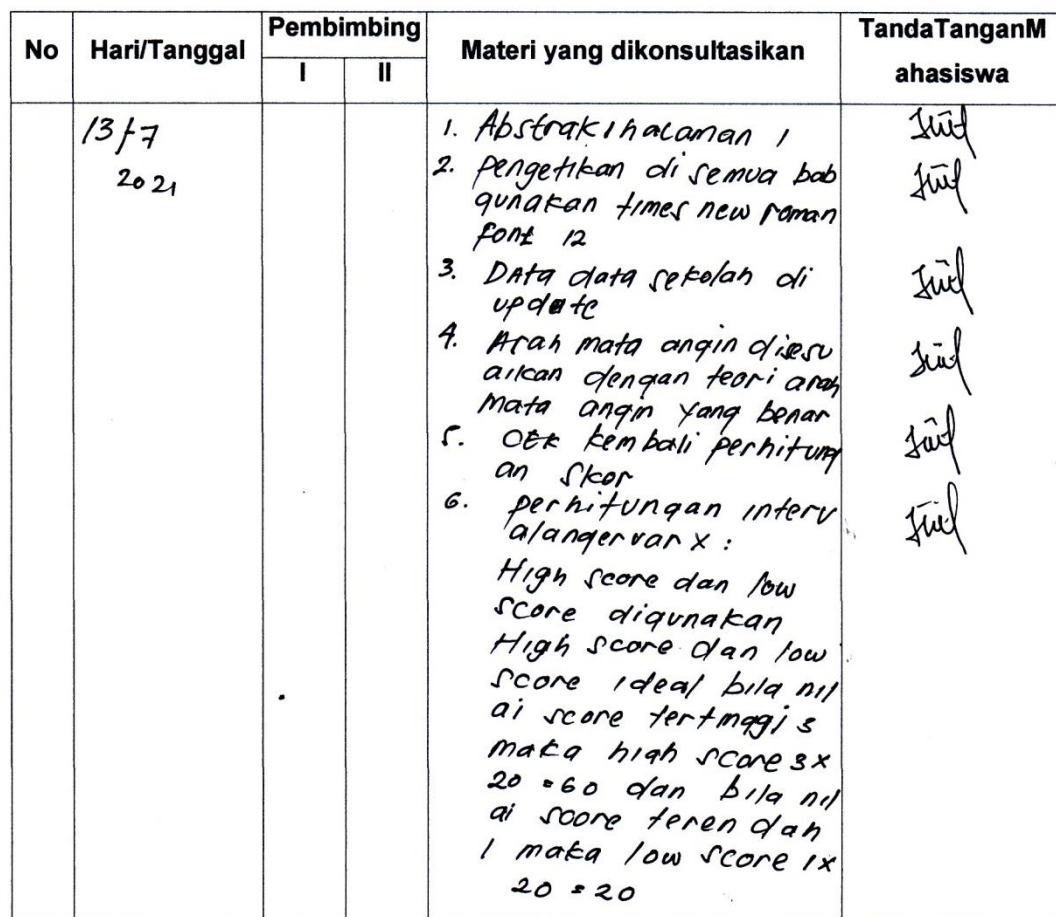 No Hari/Tanggal Pembimbing Materi yang dikonsultasikan TandaTanganM
ahasiswa
I II
13/7
2021
1. Abstrak 1 halaman 1
2. pengetikan di semua bab
gunakan times new roman
font 12
3. DAta data sekolah di
update
4. Arah mata angin disesu
aikan dengan teori arah
mata angin yang benar
5. CEK kembali perhitung
an skor
6. perhitungan interv
alanger var X :
High score dan low
score digunakan
High score dan low
score ideal bila nil
ai score tertinggi 3
maka high score 3x
20 = 60 dan bila nil
ai score teren dah
1 maka low score 1x
20 = 20